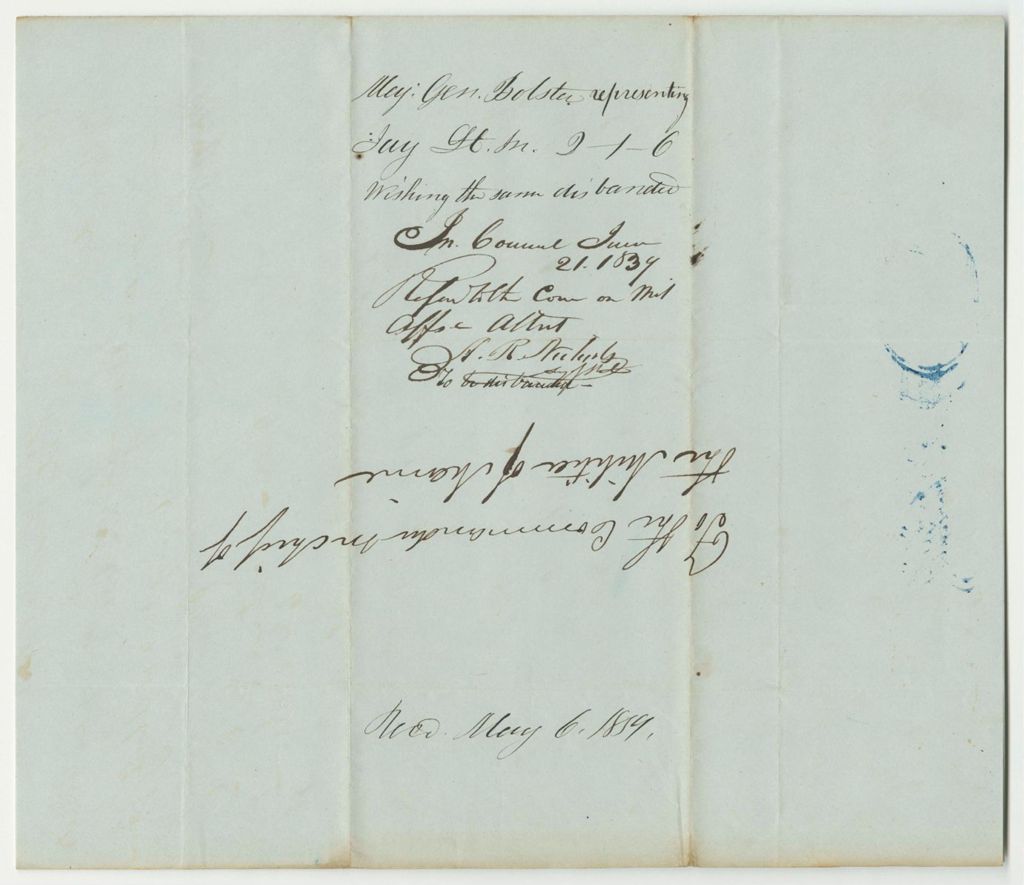 Maj: Gen. Bolster representing
Jay Lt. In. 2-1-6
Wishing the same disbanded
In Council June
21. 1839
Referd to the Com on Mil
Affrs Attest
A. R. Nichols
To be disbanded
To the Commander in chief of
the Militia of Maine
Recd. May 6. 1839.